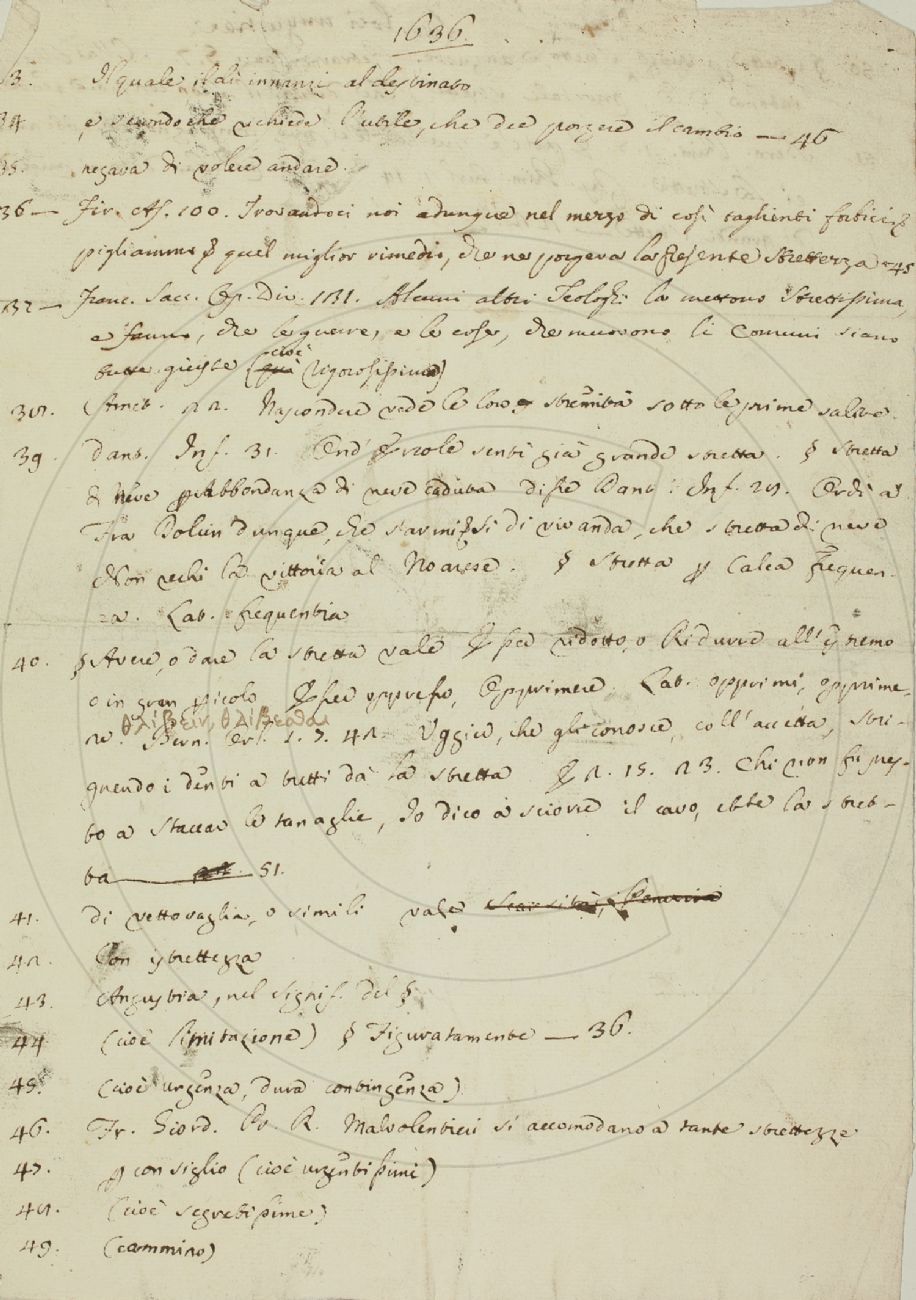 1636.
3. Il quale it di innanzi al destinato
34 e secondo che richiede l'utile, che dee porgere il cambio — 46
35. negava di volere andare.
36 — Fir. As. 100. Trovandoci noi adunque nel mezzo di così taglienti forbici,
pigliammo quel miglior rimedio, che ne porgeva la presente strettezza — 45
37 — Franc. Sacc. Op. Div. 131. Alcuni altri Teologhi la mettono strettissima,
e fanno, che le guerre, e le cose, che muovono li Comuni siano
tutte giuste (cioè rigorosissima)
38. Amet. 22. Nascondere vede le loro stremità sotto le prime salite
39. Dant. Inf. 31. Ond' Ercole sentì già grande stretta. § Stretta
di Neve p Abbondanza di neve caduta disse Dant. Inf. 28. Or di a
Fra Dolcin dunque, che s'armi, Si di vivanda, che stretta di neve
Non rechi la vittoria al Noarese. § Stretta p Calca frequen-
za. Lat. frequentia
40. § Avere, o dare la stretta vale Esser ridotto, o Ridurre all' estremo
o in gran pericolo Esser oppresso, Opprimere, Lat. opprimi, opprime-
θλίβειν, θλίβεσθαι
re. Bern. Orl. 1. 7. 42. Uggier, che gli conosce, coll' accetta, Stri-
gnendo i denti a tutti dà la stretta E 2. 15. 23. Chi non fu pres-
to a staccar le tanaglie, Io dico a sciorre il cavo, ebbe la stret-
ta 51.
41. di vettovaglia, o simili vale Scarsità, Penuria
42. Con istrettezza
43. Angustia, nel signif. del §
44 (cioè limitazione) § Figuratamente — 36.
45. (cioè urgenza, dura contingenza)
46. Fr. Giord. Pr. R. Malvolentieri si accomodano a tante strettezze
47. p consiglio (cioè urgentissimi)
48. (cioè segretissime)
49. (cammino)